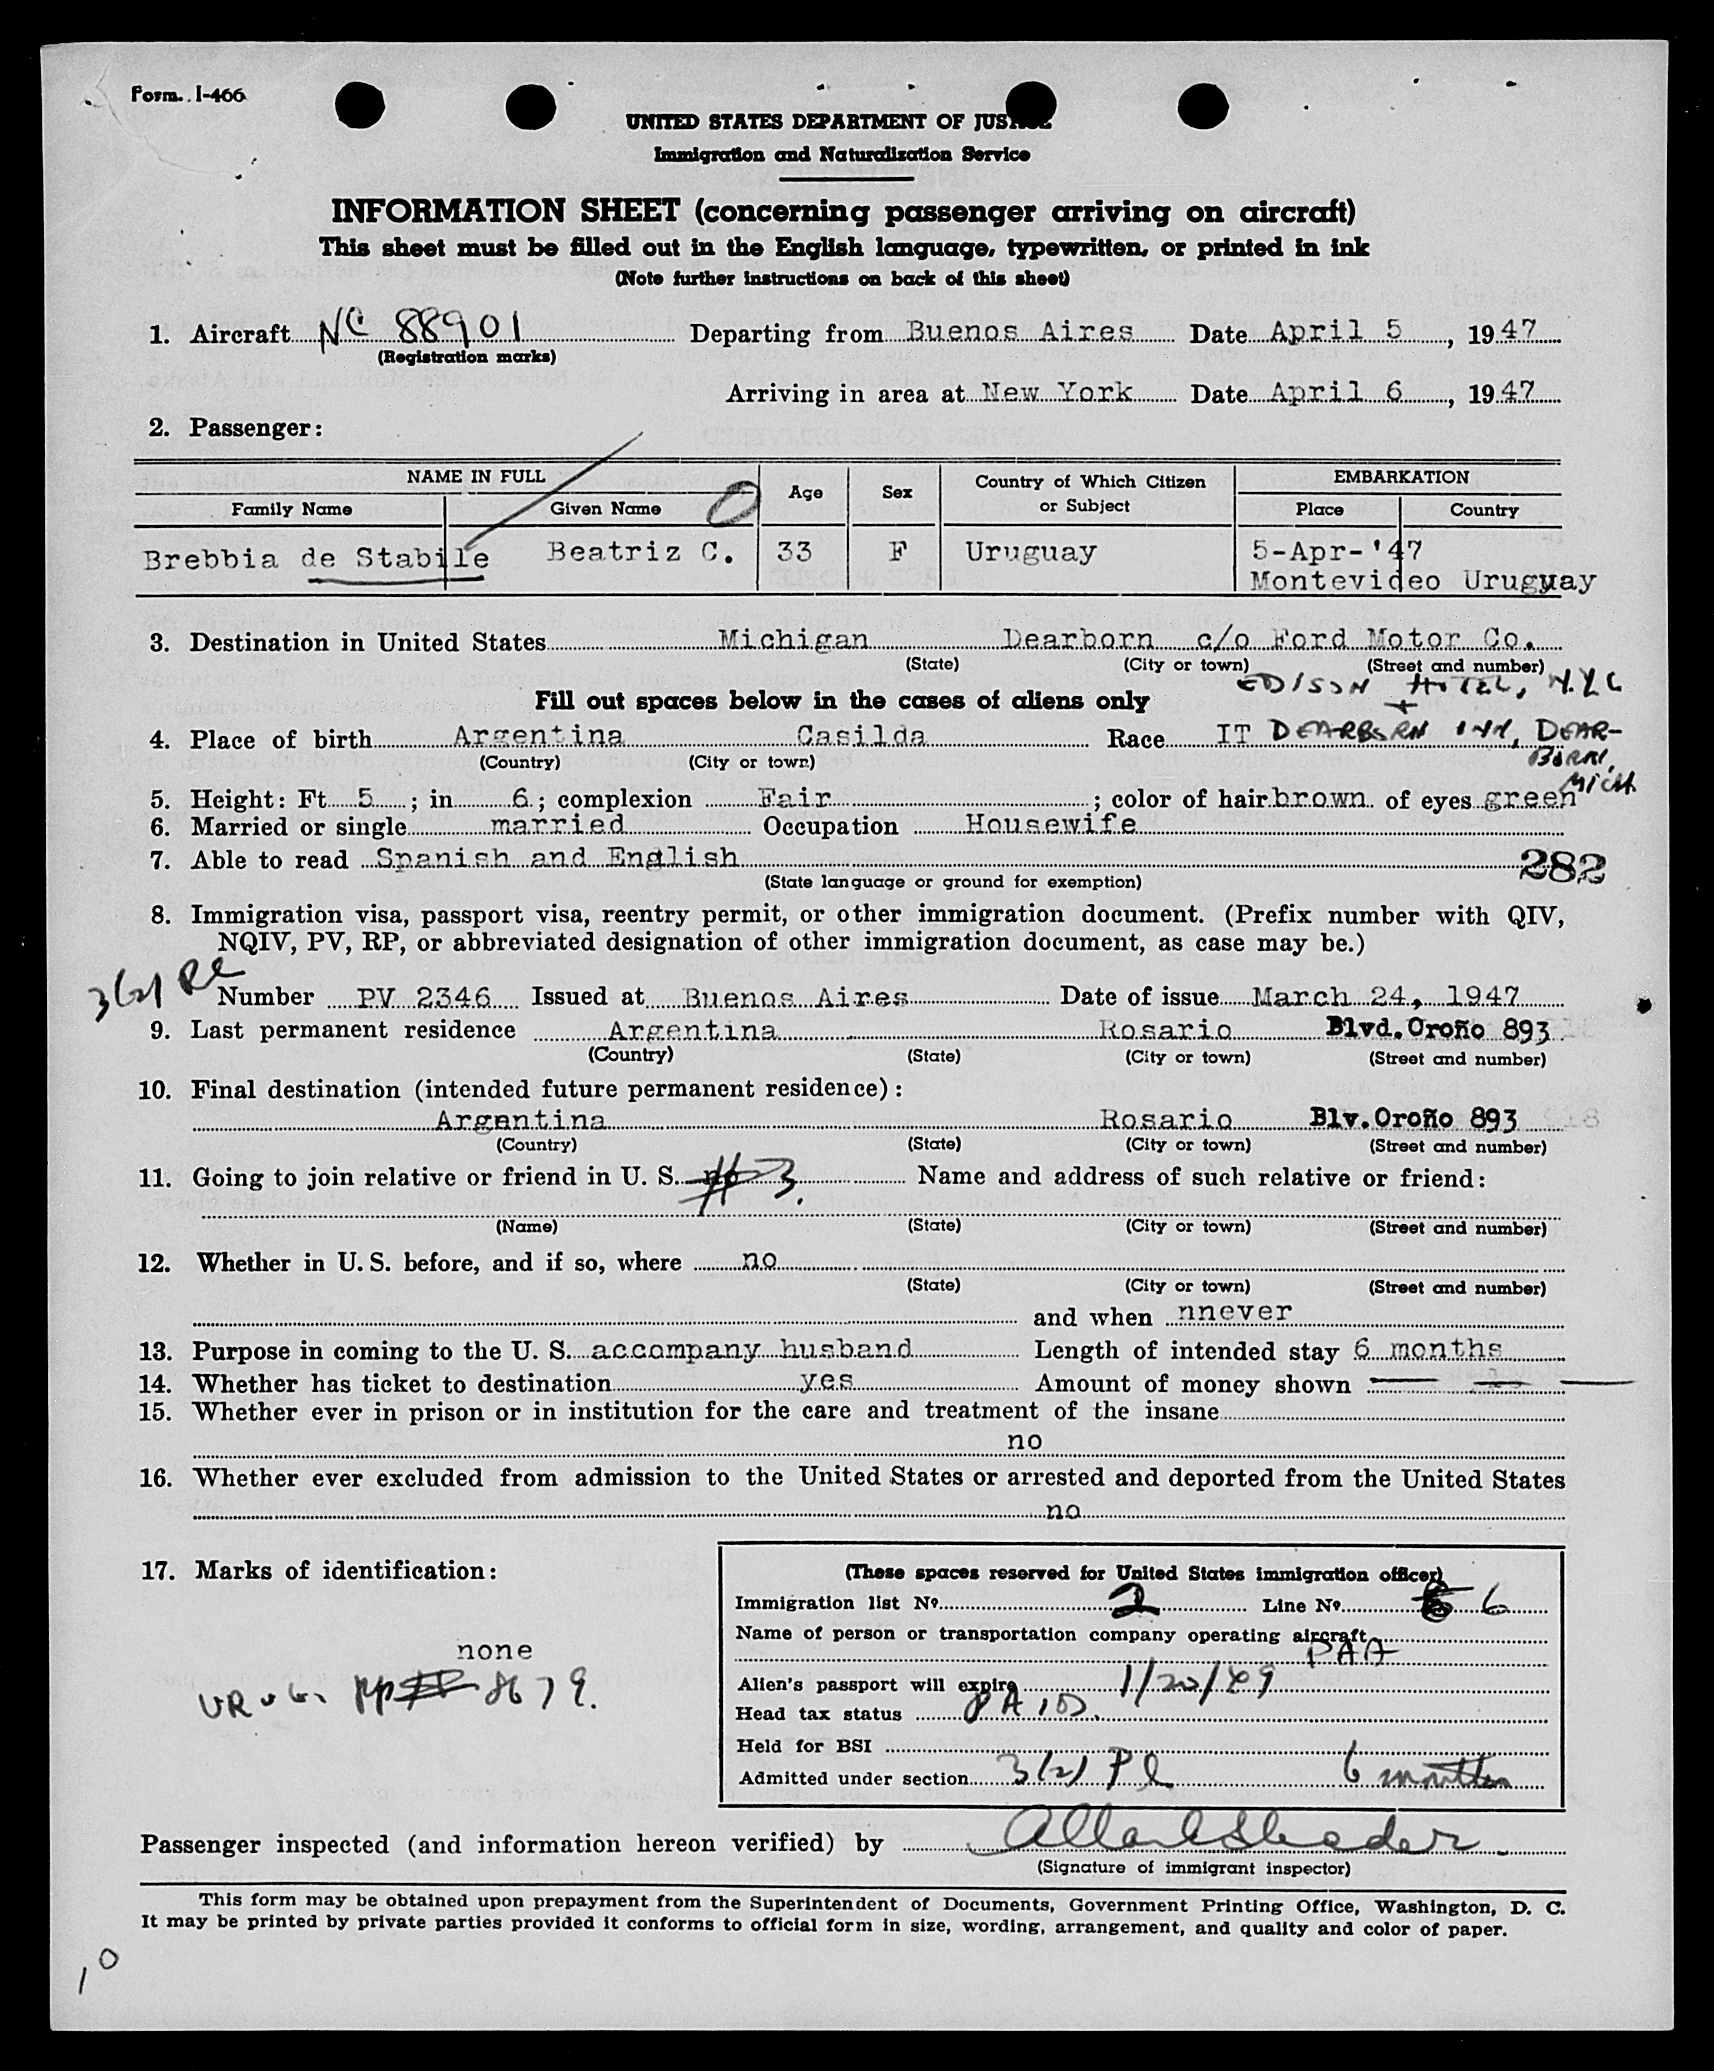 Form. I-466
UNITED STATES DEPARTMENT OF JUSTICE
Immigration and Naturalization Service
INFORMATION SHEET (concerning passenger arriving on aircraft)
This sheet must be filled out in the English language, typewritten, or printed in ink
(Note further instructions on back of this sheet)
1. Aircraft NC 88901 Departing from Buenos Aires Date April 5, 1947
(Registration marks)
Arriving in area at New York Date April 6, 1947
2. Passenger:
NAME IN FULL Age Sex Country of Which Citizen or Subject EMBARKATION
Family Name Given Name O Place Country
Brebbia de Stabile Beatriz C. 33 F Uruguay 5-Apr-'47
Montevideo Uruguay
3. Destination in United States Michigan Dearborn c/o Ford Motor Co.
(State) (City or town) (Street and number)
EDISON HOTEL, N.Y.C
+
Fill out spaces below in the cases of aliens only
4. Place of birth Argentina Casilda Race IT DEARBORN INN, DEAR-
(Country) (City or town) BORN,
MICH.
5. Height: Ft. 5; in 6; complexion Fair; color of hair brown of eyes green
6. Married or single married Occupation Housewife
7. Able to read Spanish and English 282
(State language or ground for exemption)
8. Immigration visa, passport visa, reentry permit, or other immigration document. (Prefix number with QIV,
NQIV, PV, RP, or abbreviated designation of other immigration document, as case may be.)
3(2)
Number PV 2346 Issued at Buenos Aires Date of issue March 24, 1947
9. Last permanent residence Argentina Rosario Blvd. Oroño 893
(Country) (State) (City or town) (Street and number)
10. Final destination (intended future permanent residence):
Argentina Rosario Blv. Oroño 893
(Country) (State) (City or town) (Street and number)
11. Going to join relative or friend in U. S. no #3. Name and address of such relative or friend:
(Name) (State) (City or town) (Street and number)
12. Whether in U. S. before, and if so, where no
(State) (City or town) (Street and number)
and when nnever
13. Purpose in coming to the U. S. accompany husband Length of intended stay 6 months
14. Whether has ticket to destination yes Amount of money shown
15. Whether ever in prison or in institution for the care and treatment of the insane
no
16. Whether ever excluded from admission to the United States or arrested and deported from the United States
no
17. Marks of identification:
none
8679.
(These spaces reserved for United States immigration officer)
Immigration list No. 2 Line No. 6
Name of person or transportation company operating aircraft
PAA
Alien's passport will expire 1/20/49
Head tax status PAID.
Held for BSI
Admitted under section 3(2) 6 months
Passenger inspected (and information hereon verified) by
(Signature of immigrant inspector)
This form may be obtained upon prepayment from the Superintendent of Documents, Government Printing Office, Washington, D. C.
It may be printed by private parties provided it conforms to official form in size, wording, arrangement, and quality and color of paper.
10